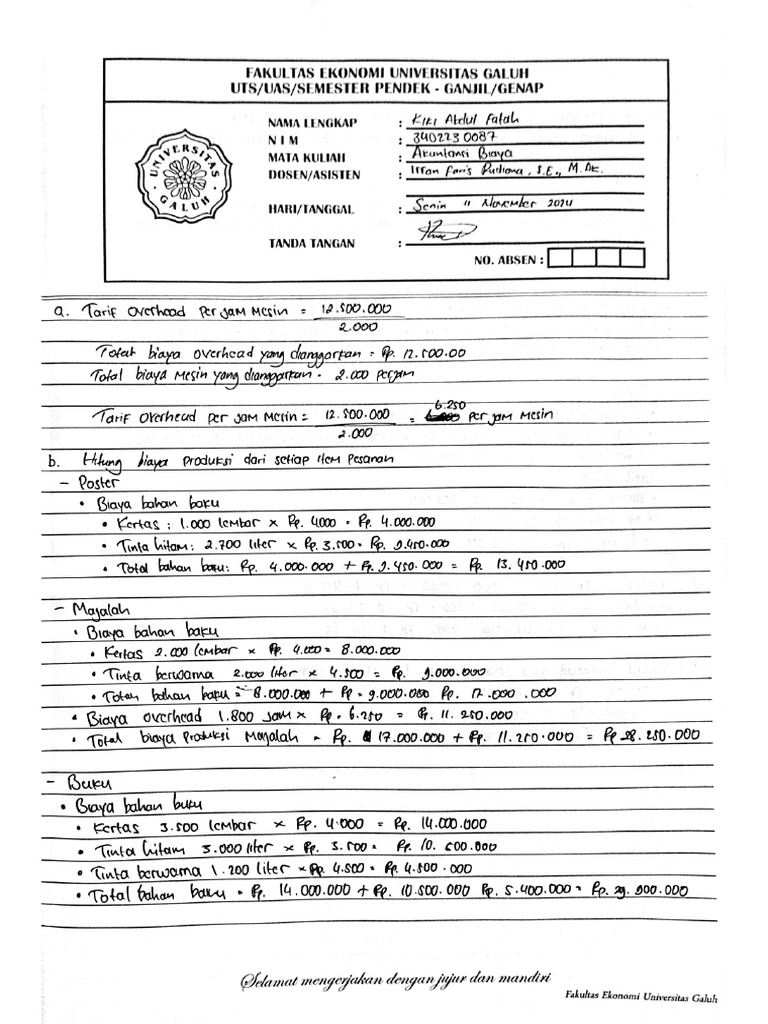 FAKULTAS EKONOMI UNIVERSITAS GALUH
UTS/UAS/SEMESTER PENDEK - GANJIL/GENAP
NAMA LENGKAP : Kiki Abdul Fatah
N I M : 3402230087
MATA KULIAH : Akuntansi Biaya
DOSEN/ASISTEN : Irfan Faris Rudiana, S.E., M.Ak.
HARI/TANGGAL : Senin 11 November 2024
TANDA TANGAN :
NO. ABSEN :
UNIVERSITAS GALUH
a. Tarif overhead per jam Mesin = 12.500.000
2.000
Total biaya overhead yang dianggarkan = Rp. 12.500.00
Total biaya Mesin yang dianggarkan = 2.000 perjam
Tarif overhead per jam Mesin = 12.500.000 = 6.250 per jam Mesin
2.000
b. Hitung biaya produksi dari setiap item pesanan
- Poster
• Biaya bahan baku
• Kertas : 1.000 lembar x Rp. 4000 = Rp. 4.000.000
• Tinta hitam : 2.700 liter x Rp. 3.500 = Rp. 9.450.000
• Total bahan baku : Rp. 4.000.000 + Rp. 9.450.000 = Rp. 13.450.000
- Majalah
• Biaya bahan baku
• Kertas 2.000 lembar x Rp. 4.000 = 8.000.000
• Tinta berwarna 2.000 liter x 4.500 = Rp. 9.000.000
• Total bahan baku = 8.000.000 + Rp. 9.000.000 Rp. 17.000.000
• Biaya overhead 1.800 jam x Rp. 6.250 = Rp. 11.250.000
• Total biaya produksi Majalah = Rp. 17.000.000 + Rp. 11.250.000 = Rp 28.250.000
- Buku
• Biaya bahan buku
• Kertas 3.500 lembar x Rp. 4.000 = Rp. 14.000.000
• Tinta hitam 3.000 liter x Rp. 3.500 = Rp. 10.500.000
• Tinta berwarna 1.200 liter x Rp. 4.500 = Rp. 4.500.000
• Total bahan baku = Rp. 14.000.000 + Rp. 10.500.000 Rp. 5.400.000 = Rp. 29.900.000
Selamat mengerjakan dengan jujur dan mandiri
Fakultas Ekonomi Universitas Galuh